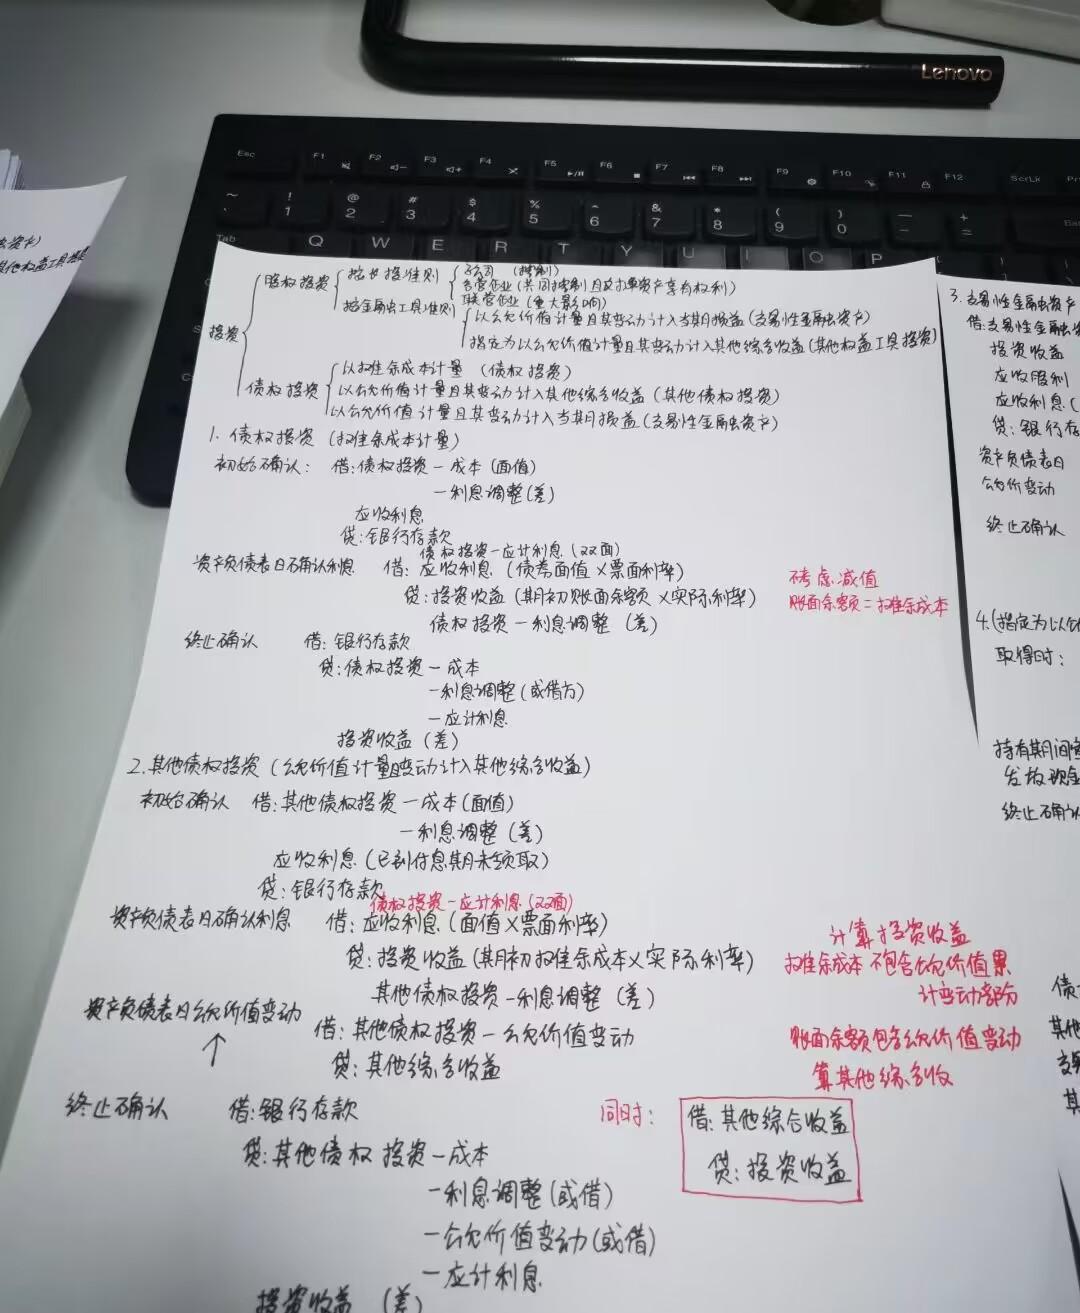 Lenovo
Esc F1 F2 F3 F4 F5 F6 F7 F8 F9 F10 F11 F12 ScrLk
~ ! @ # $ % ^ & * ( ) — +
1 2 3 4 5 6 7 8 9 0 - =
Tab Q W E R T Y U I O P
融资产)
其他权益工具投资
投资
股权投资
按长投准则
子公司 (控制)
合营企业(共同控制且对净资产享有权利)
联营企业(重大影响)
按金融工具准则
以公允价值计量且其变动计入当期损益(交易性金融资产)
指定为以公允价值计量且其变动计入其他综合收益(其他权益工具投资)
债权投资
以摊余成本计量 (债权投资)
以公允价值计量且其变动计入其他综合收益(其他债权投资)
以公允价值计量且其变动计入当期损益(交易性金融资产)
1. 债权投资 (摊余成本计量)
初始确认: 借:债权投资—成本(面值)
—利息调整(差)
应收利息
贷:银行存款
债权投资—应计利息(双面)
资产负债表日确认利息 借: 应收利息 (债券面值×票面利率)
贷:投资收益(期初账面余额×实际利率)
债权投资—利息调整 (差)
不考虑减值
账面余额=摊余成本
终止确认 借: 银行存款
贷:债权投资—成本
—利息调整(或借方)
—应计利息
投资收益(差)
2.其他债权投资(公允价值计量且变动计入其他综合收益)
初始确认 借:其他债权投资—成本(面值)
—利息调整 (差)
应收利息(已到付息期未领取)
贷:银行存款
债权投资—应计利息(双面)
资产负债表日确认利息 借: 应收利息(面值×票面利率)
贷:投资收益(期初摊余成本×实际利率)
其他债权投资—利息调整 (差)
计算投资收益
摊余成本不包含公允价值累
计变动部分
资产负债表日公允价值变动
↑
借:其他债权投资—公允价值变动
贷:其他综合收益
账面余额包含公允价值变动
算其他综合收
终止确认 借:银行存款
贷:其他债权投资—成本
—利息调整(或借)
—公允价值变动(或借)
—应计利息
投资收益 (差)
同时:
借:其他综合收益
贷:投资收益
3. 交易性金融资产
借:交易性金融资
投资收益
应收股利
应收利息(
贷:银行存
资产负债表日
公允价变动
终止确认
4.(指定为以公
取得时:
持有期间
发放现金
终止确认
债
其他
交易
其